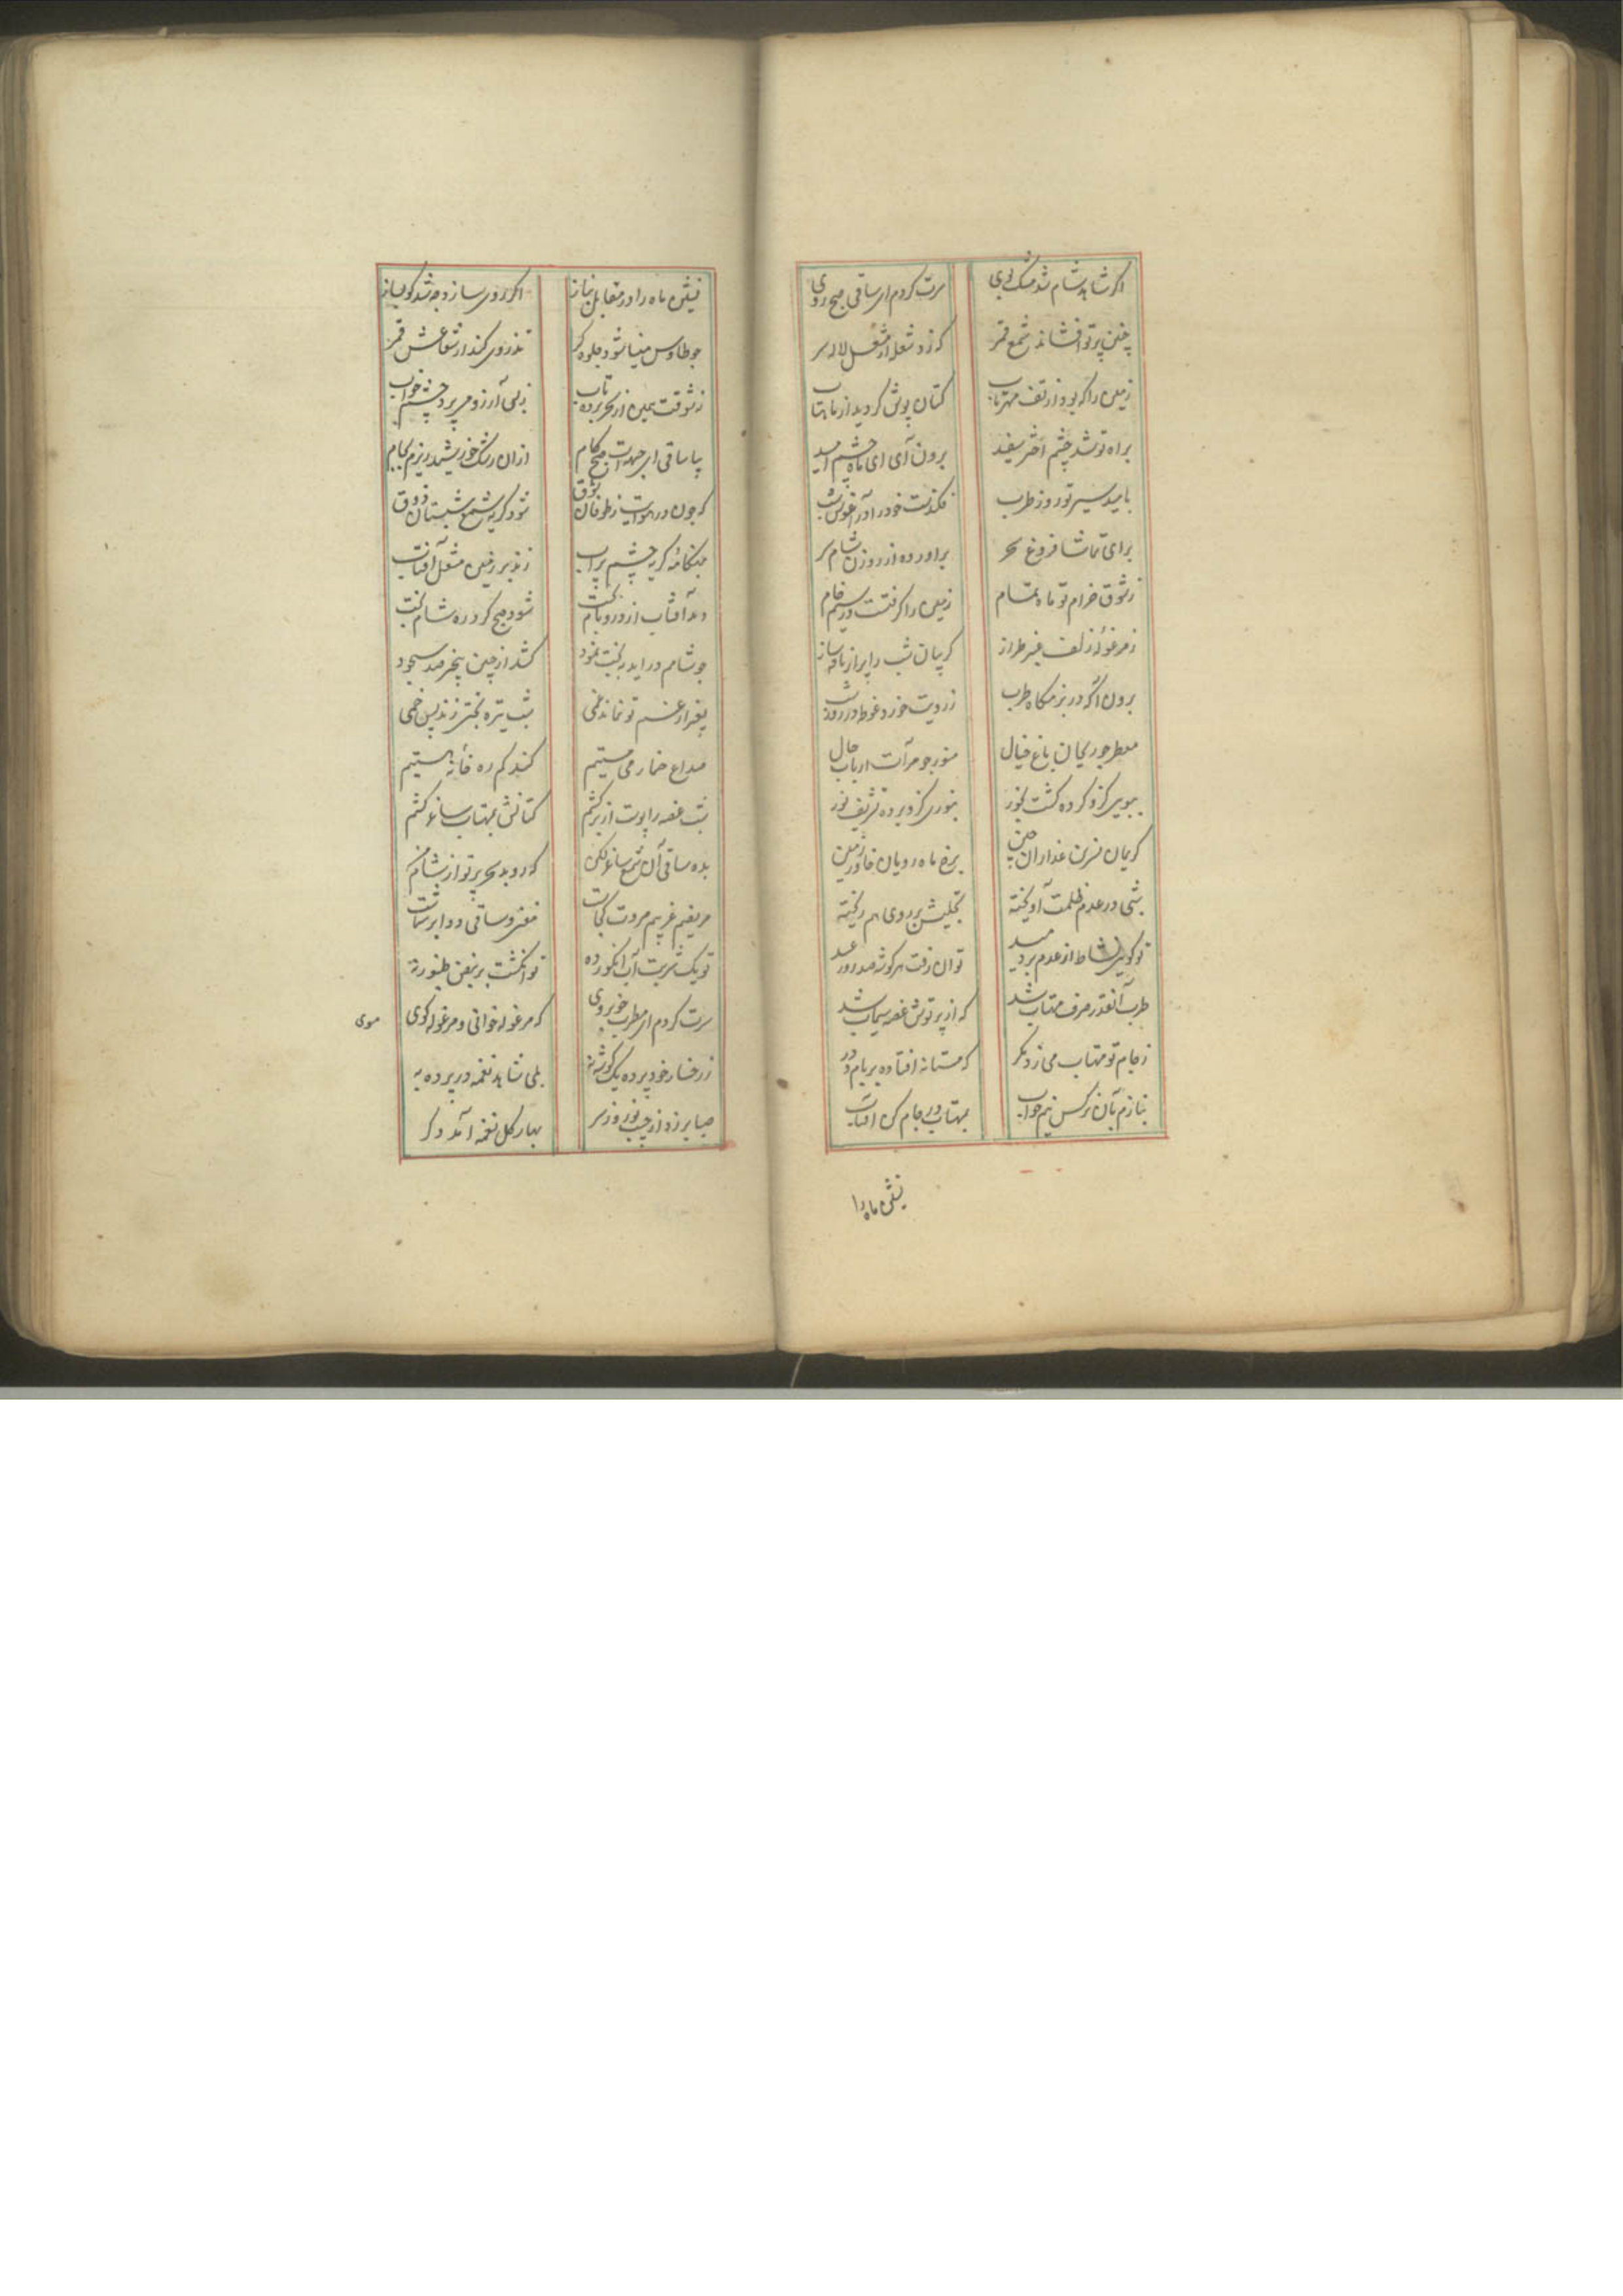 اگر شاهد شام شد مشک بوی سرت کردم ای ساقی صبح روی
چنین پرتو افشاند شمع قمر که زد شعله از مشعل لاله سر
زمین را که بود از تف مهر تاب کتان پوش کردید از ماهتاب
براه تو شد چشم اختر سفید برون آی ای ماه چشم امید
بامید سیر تو روز طرب فکندست خود را در آغوش شب
برای تماشا فروغ سحر براورده از روزن شام سر
ز شوق خرام تو ماه تمام زمین را گرفتست در سیم خام
ز مرغوله زلف عنبر طراز کریبان شب را پر از نافه ساز
برون آ که در بزمگاه طرب ز رویت خورد غوطه در روز شب
معطر چو ریحان باغ خیال منور چو مرآت ارباب حال
ببویی کزو کرده کشت بخور بنوری کزو برده تشریف نور
کریمان نسرین عذاران چین برخ ماه رویان خاور زمین
شبی در عدم ظلمت آویخته تجلیش بر روی هم ریخته
تو گویی نشاط از عدم بر دمید توان رفت هر گوشه صد روز عید
طرب آنقدر صرف مهتاب شد که از پرتوش غصه سیماب شد
ز جام تو مهتاب می زد مگر که مستانه افتاده بر بام و در
بنازم بآن نرکس نیم خواب بمهتاب در جام کن افتاب
نشین ماه را
نشین ماه را در مقابل بناز اگر روی سازد وجه شد کو بساز
چو طاوس مینا شود جلوه کر تذروی کند از شعاعش قمر
ز شوقت یمن از سحر برده تاب پی آرزو می پرد چشم خواب
بیا ساقی ای جبهه ات صبح کام ازان رشک خورشید ریزم بجام
که چون در هوایت ز طوفان شوق شود کریه شمع شبستان ذوق
بهنکامه کریه چشم پر آب زند بر زمین مشعل آفتاب
دمد آفتاب از در و بام بخت شود صبح کرد ره شام بخت
چو شامم در اید ز بختت نمود کشد از جبین پنجر صد سجود
بغیر از غم تو نماند غمی شب تیره بختی زند پس خمی
صداع خمار می مستیم کند کم ره خانه هستیم
شب غصه را پوست از بر کشم کتانش بمهتاب ساغر کشم
بده ساقی آن شمع ساغر لکن که روید سحر پرتو از شام من
مریضم غریبم مروت کجاست مغنی و ساقی دوا بر شماست
تو یک شربت آب انکور ده تو انکشت بر نبض طنبور نه
سرت کردم ای مطرب خوبروی که مرغوله خوانی و مرغوله کوی
موی
ز رخسار خود پرده یک گوشه نه بلی شاهد نغمه در پرده به
صبا بر زد از جیب نوروز سر بهار کل نغمه آمد دکر